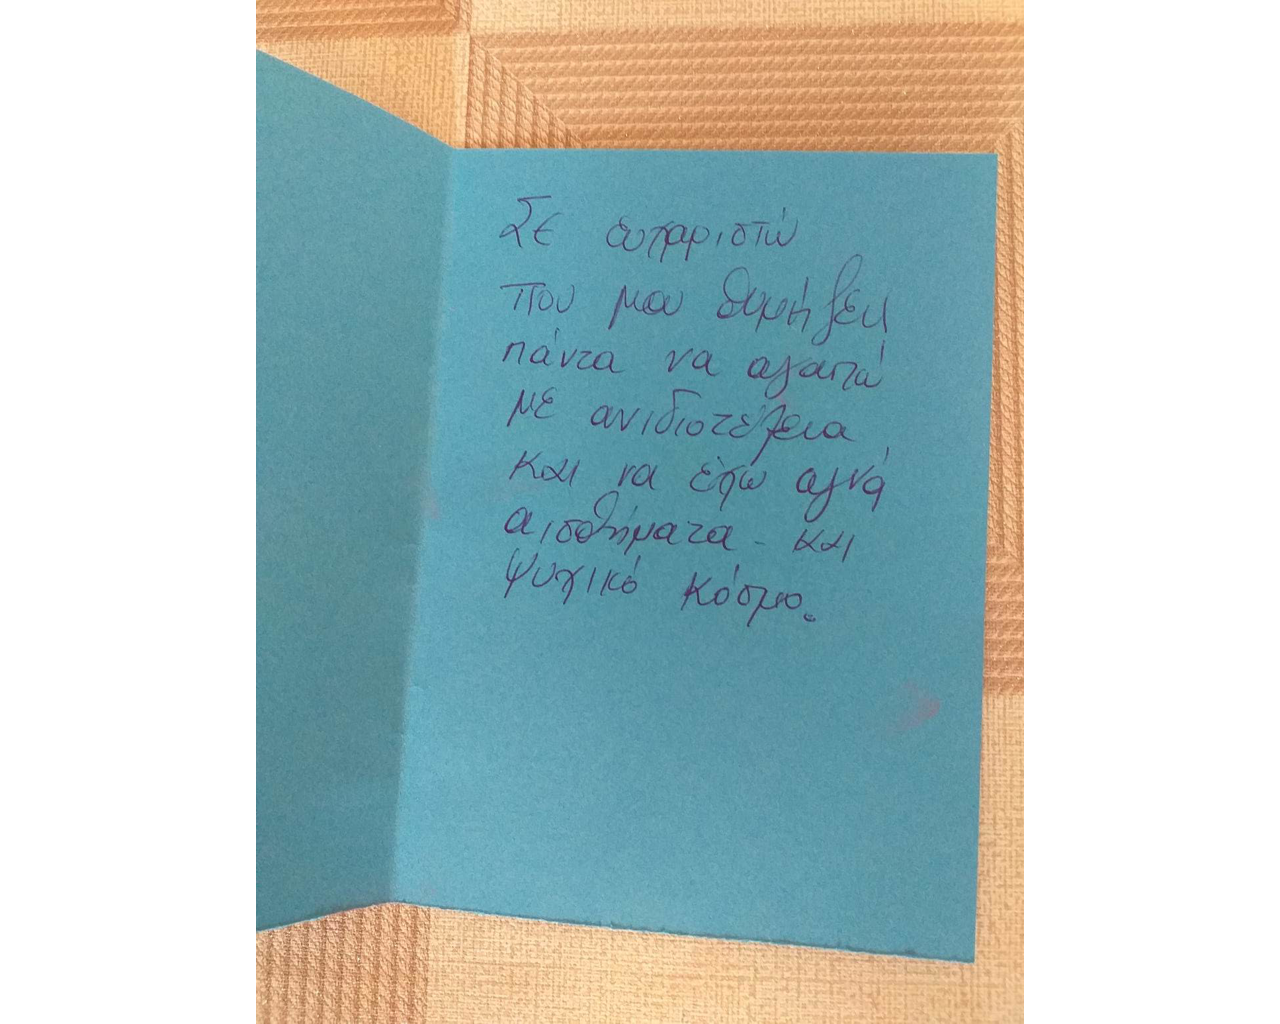 Σε ευχαριστώ
που μου θυμήζεις
πάντα να αγαπώ
με ανιδιοτέλεια
και να έχω αγνά
αισθήματα - και
ψυχικό κόσμο.